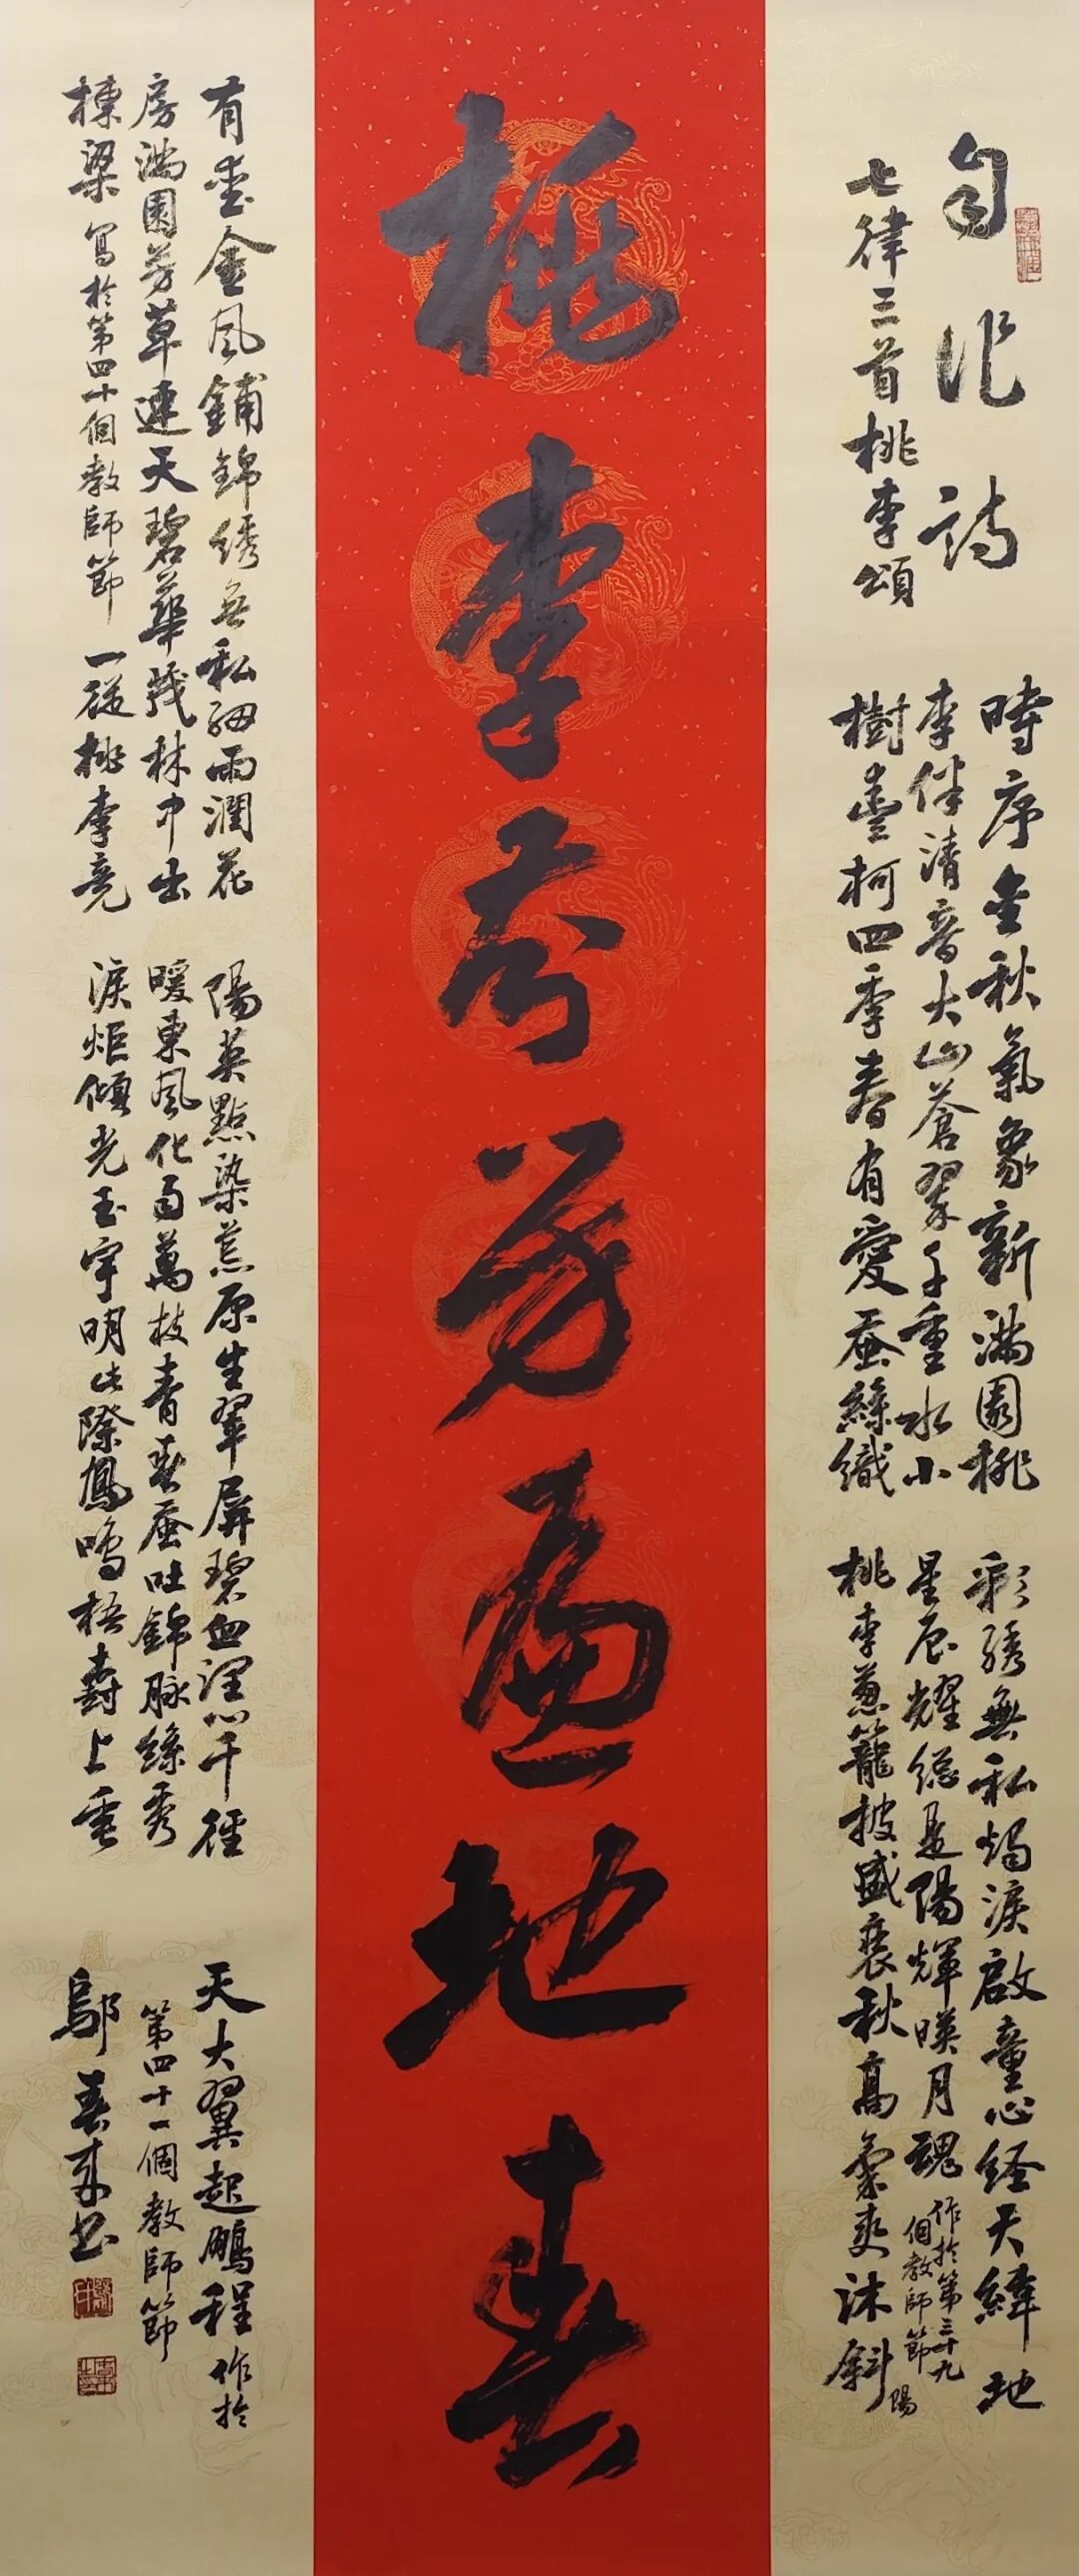 桃李芬芳遍地春
自作詩
七律三首桃李頌
時序金秋氣象新滿園桃
李伴清音大山蒼翠千重水小
樹靈柯四季春有愛蚕絲織
彩綉無私燭淚啟童心经天緯地
星辰耀總是陽輝暎月魂作於第三十九
個教師節
桃李蔥籠披盛裝秋高氣爽沐斜陽
有愛金风鋪錦綉無私細雨潤花
房滿園芳草連天碧華茂林中出
棟梁寫於第四十個教師節一從桃李竞
陽英點染荒原生翠屏碧血浸心千徑
暖東风化雨萬枝青春蚕吐錦脉絲秀
淚炬傾光玉宇明此際鳳鳴梧樹上垂
天大翼起鵬程作於
第四十一個教師節
鄔春來书